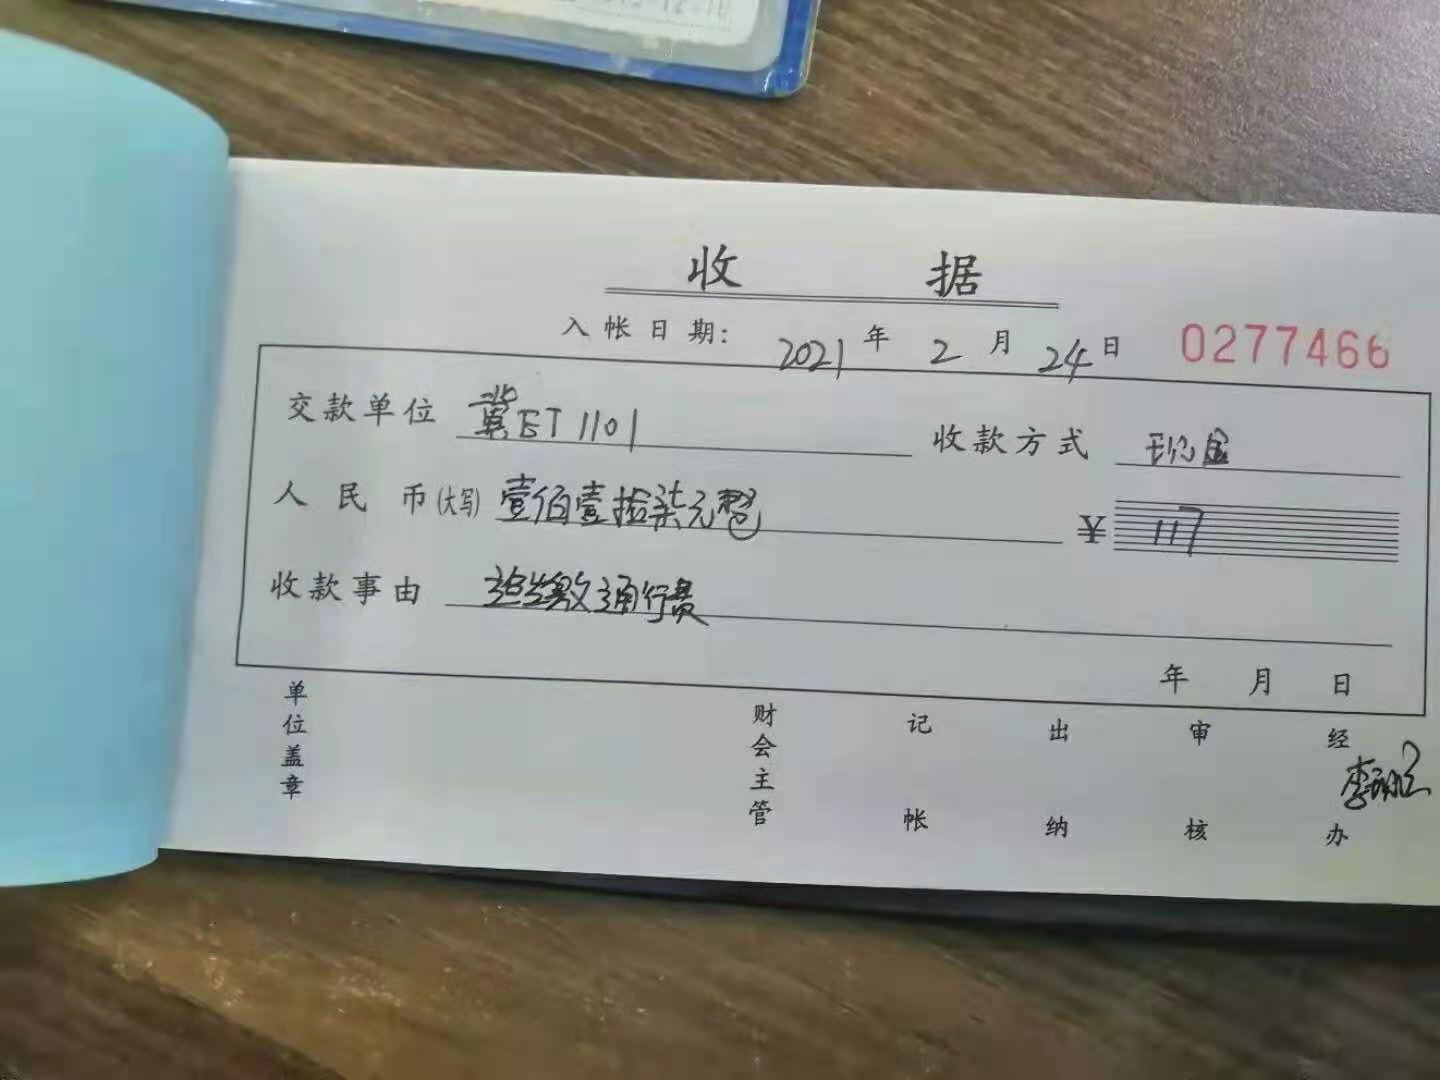 收 据
入帐日期: 2021 年 2 月 24 日 0277466
交款单位 冀ET1101 收款方式 现金
人民币(大写) 壹佰壹拾柒元整 ¥ 117
收款事由 追缴通行费
年 月 日
单位盖章 财会主管 记帐 出纳 审核 经办